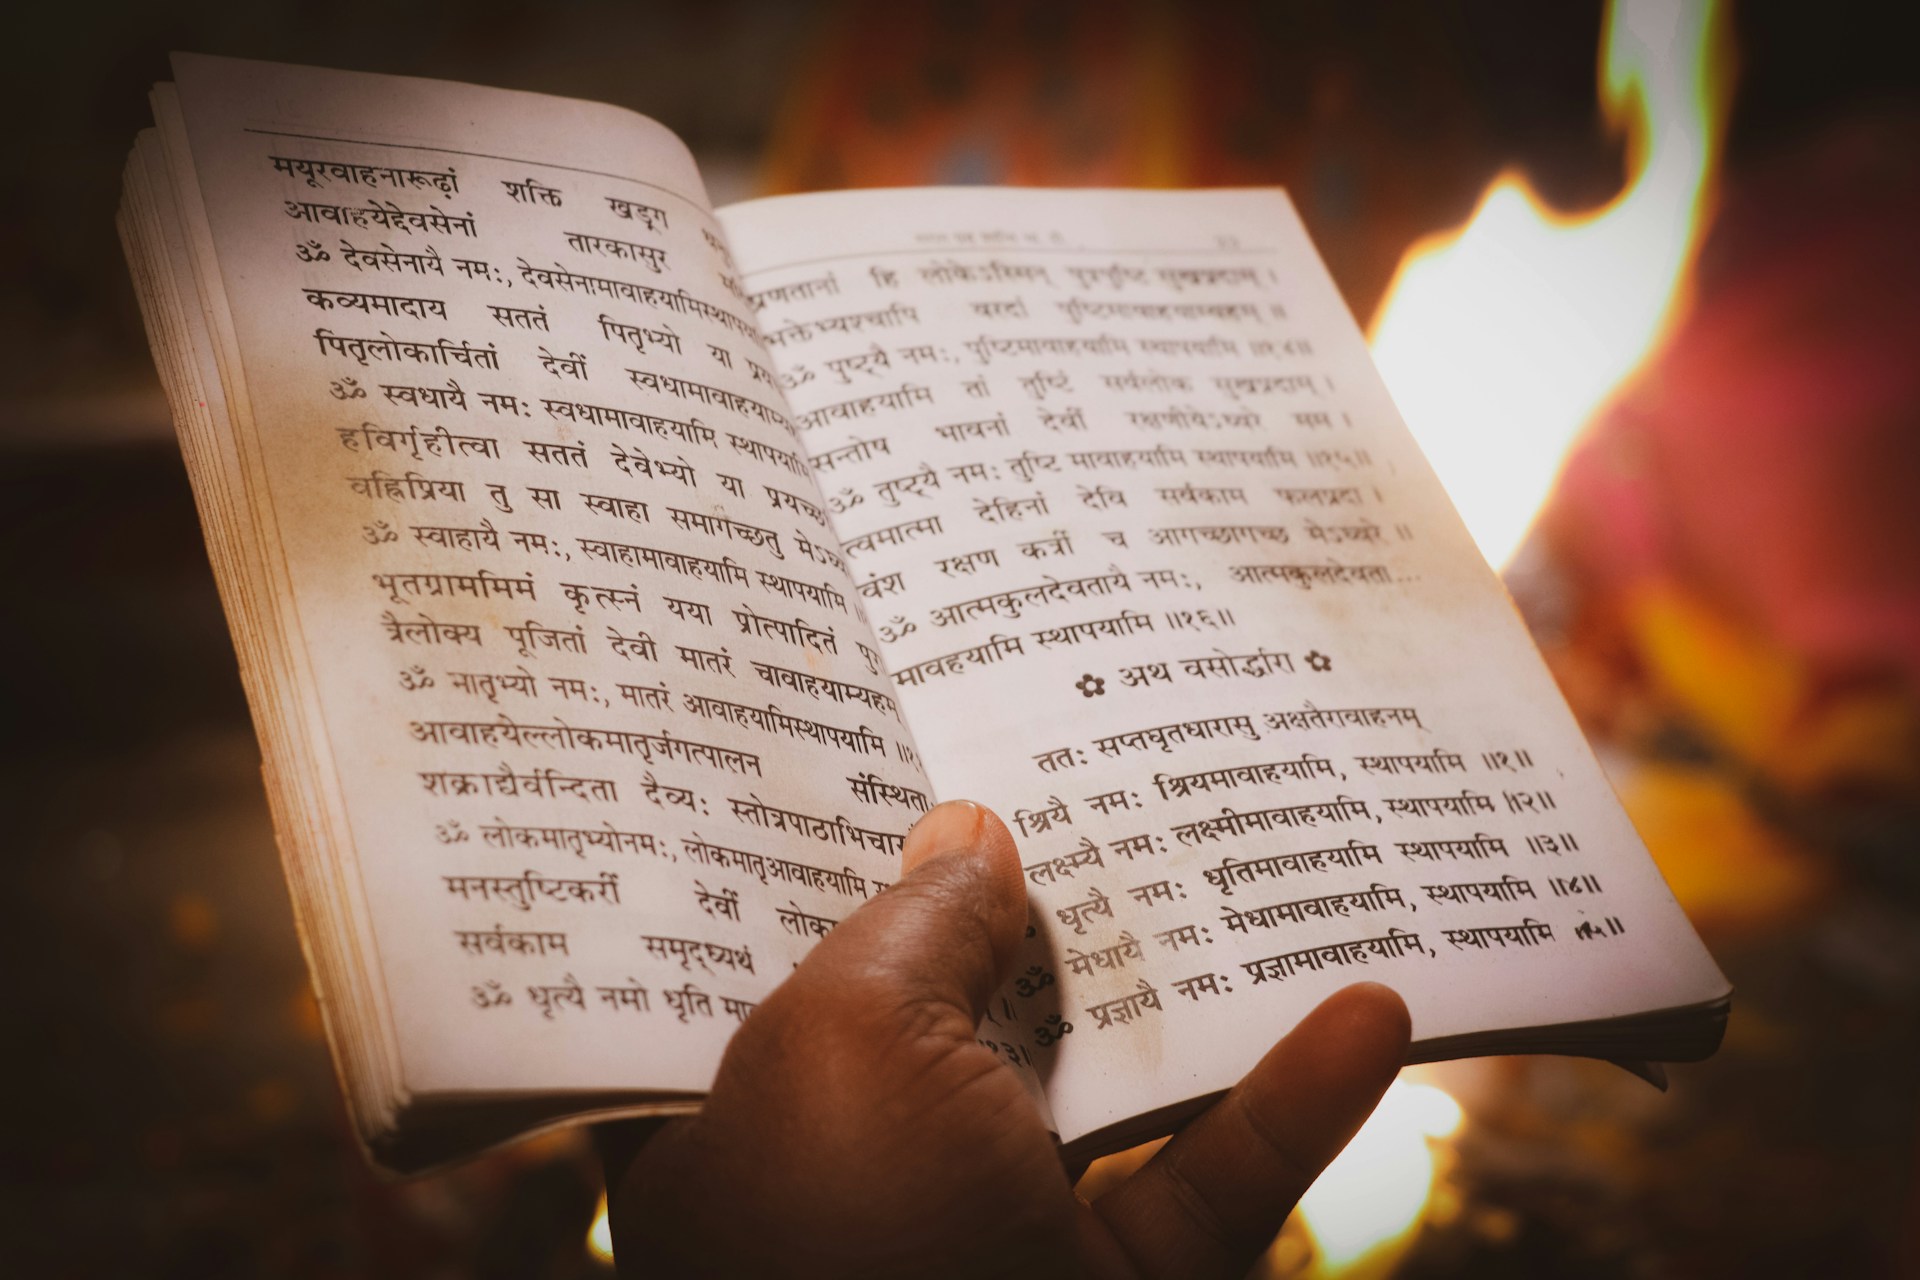 मयूरवाहनारूढ़ां शक्ति खड्ग
आवाहयेद्देवसेनां तारकासुर
ॐ देवसेनायै नमः, देवसेनामावाहयामिस्थापया
कव्यमादाय सततं पितृभ्यो या प्रय
पितृलोकार्चितां देवीं स्वधामावाहयाम्य
ॐ स्वधायै नमः स्वधामावाहयामि स्थापयामि
हविर्गृहीत्वा सततं देवेभ्यो या प्रयच्छ
वह्निप्रिया तु सा स्वाहा समागच्छतु मेऽध्व
ॐ स्वाहायै नमः, स्वाहामावाहयामि स्थापयामि
भूतग्राममिमं कृत्स्नं यया प्रोत्पादितं पु
त्रैलोक्य पूजितां देवी मातरं चावाहयाम्यहम्
ॐ मातृभ्यो नमः, मातरं आवाहयामिस्थापयामि
आवाहयेल्लोकमातृर्जगत्पालन संस्थिताः
शक्राद्यैर्वन्दिता दैव्यः स्तोत्रपाठाभिचार
ॐ लोकमातृभ्योनमः, लोकमातृआवाहयामि
मनस्तुष्टिकरीं देवीं लोक
सर्वकाम समृद्ध्यथं
ॐ धृत्यै नमो धृति मा
प्रणतानां हि लोकेऽस्मिन् पुत्रपुष्टि सुखप्रदाम् ।
भक्तेभ्यश्चापि वरदां पुष्टिमावाहयाम्यहम् ॥
ॐ पुष्ट्यै नमः, पुष्टिमावाहयामि स्थापयामि ॥१४॥
आवाहयामि तां तुष्टिं सर्वलोक सुखप्रदाम् ।
सन्तोष भावनां देवीं रक्षणीयेऽध्वरे मम ।
ॐ तुष्ट्यै नमः तुष्टि मावाहयामि स्थापयामि ॥१५॥
त्वमात्मा देहिनां देवि सर्वकाम फलप्रदा ।
वंश रक्षण कर्त्रीं च आगच्छागच्छ मेऽध्वरे ॥
ॐ आत्मकुलदेवतायै नमः, आत्मकुलदेवता...
मावहयामि स्थापयामि ॥१६॥
✿ अथ वसोर्द्धारा ✿
ततः सप्तघृतधारासु अक्षतैरावाहनम्
श्रियै नमः श्रियमावाहयामि, स्थापयामि ॥१॥
लक्ष्म्यै नमः लक्ष्मीमावाहयामि, स्थापयामि ॥२॥
धृत्यै नमः धृतिमावाहयामि स्थापयामि ॥३॥
ॐ मेधायै नमः मेधामावाहयामि, स्थापयामि ॥४॥
ॐ प्रज्ञायै नमः प्रज्ञामावाहयामि, स्थापयामि ॥५॥